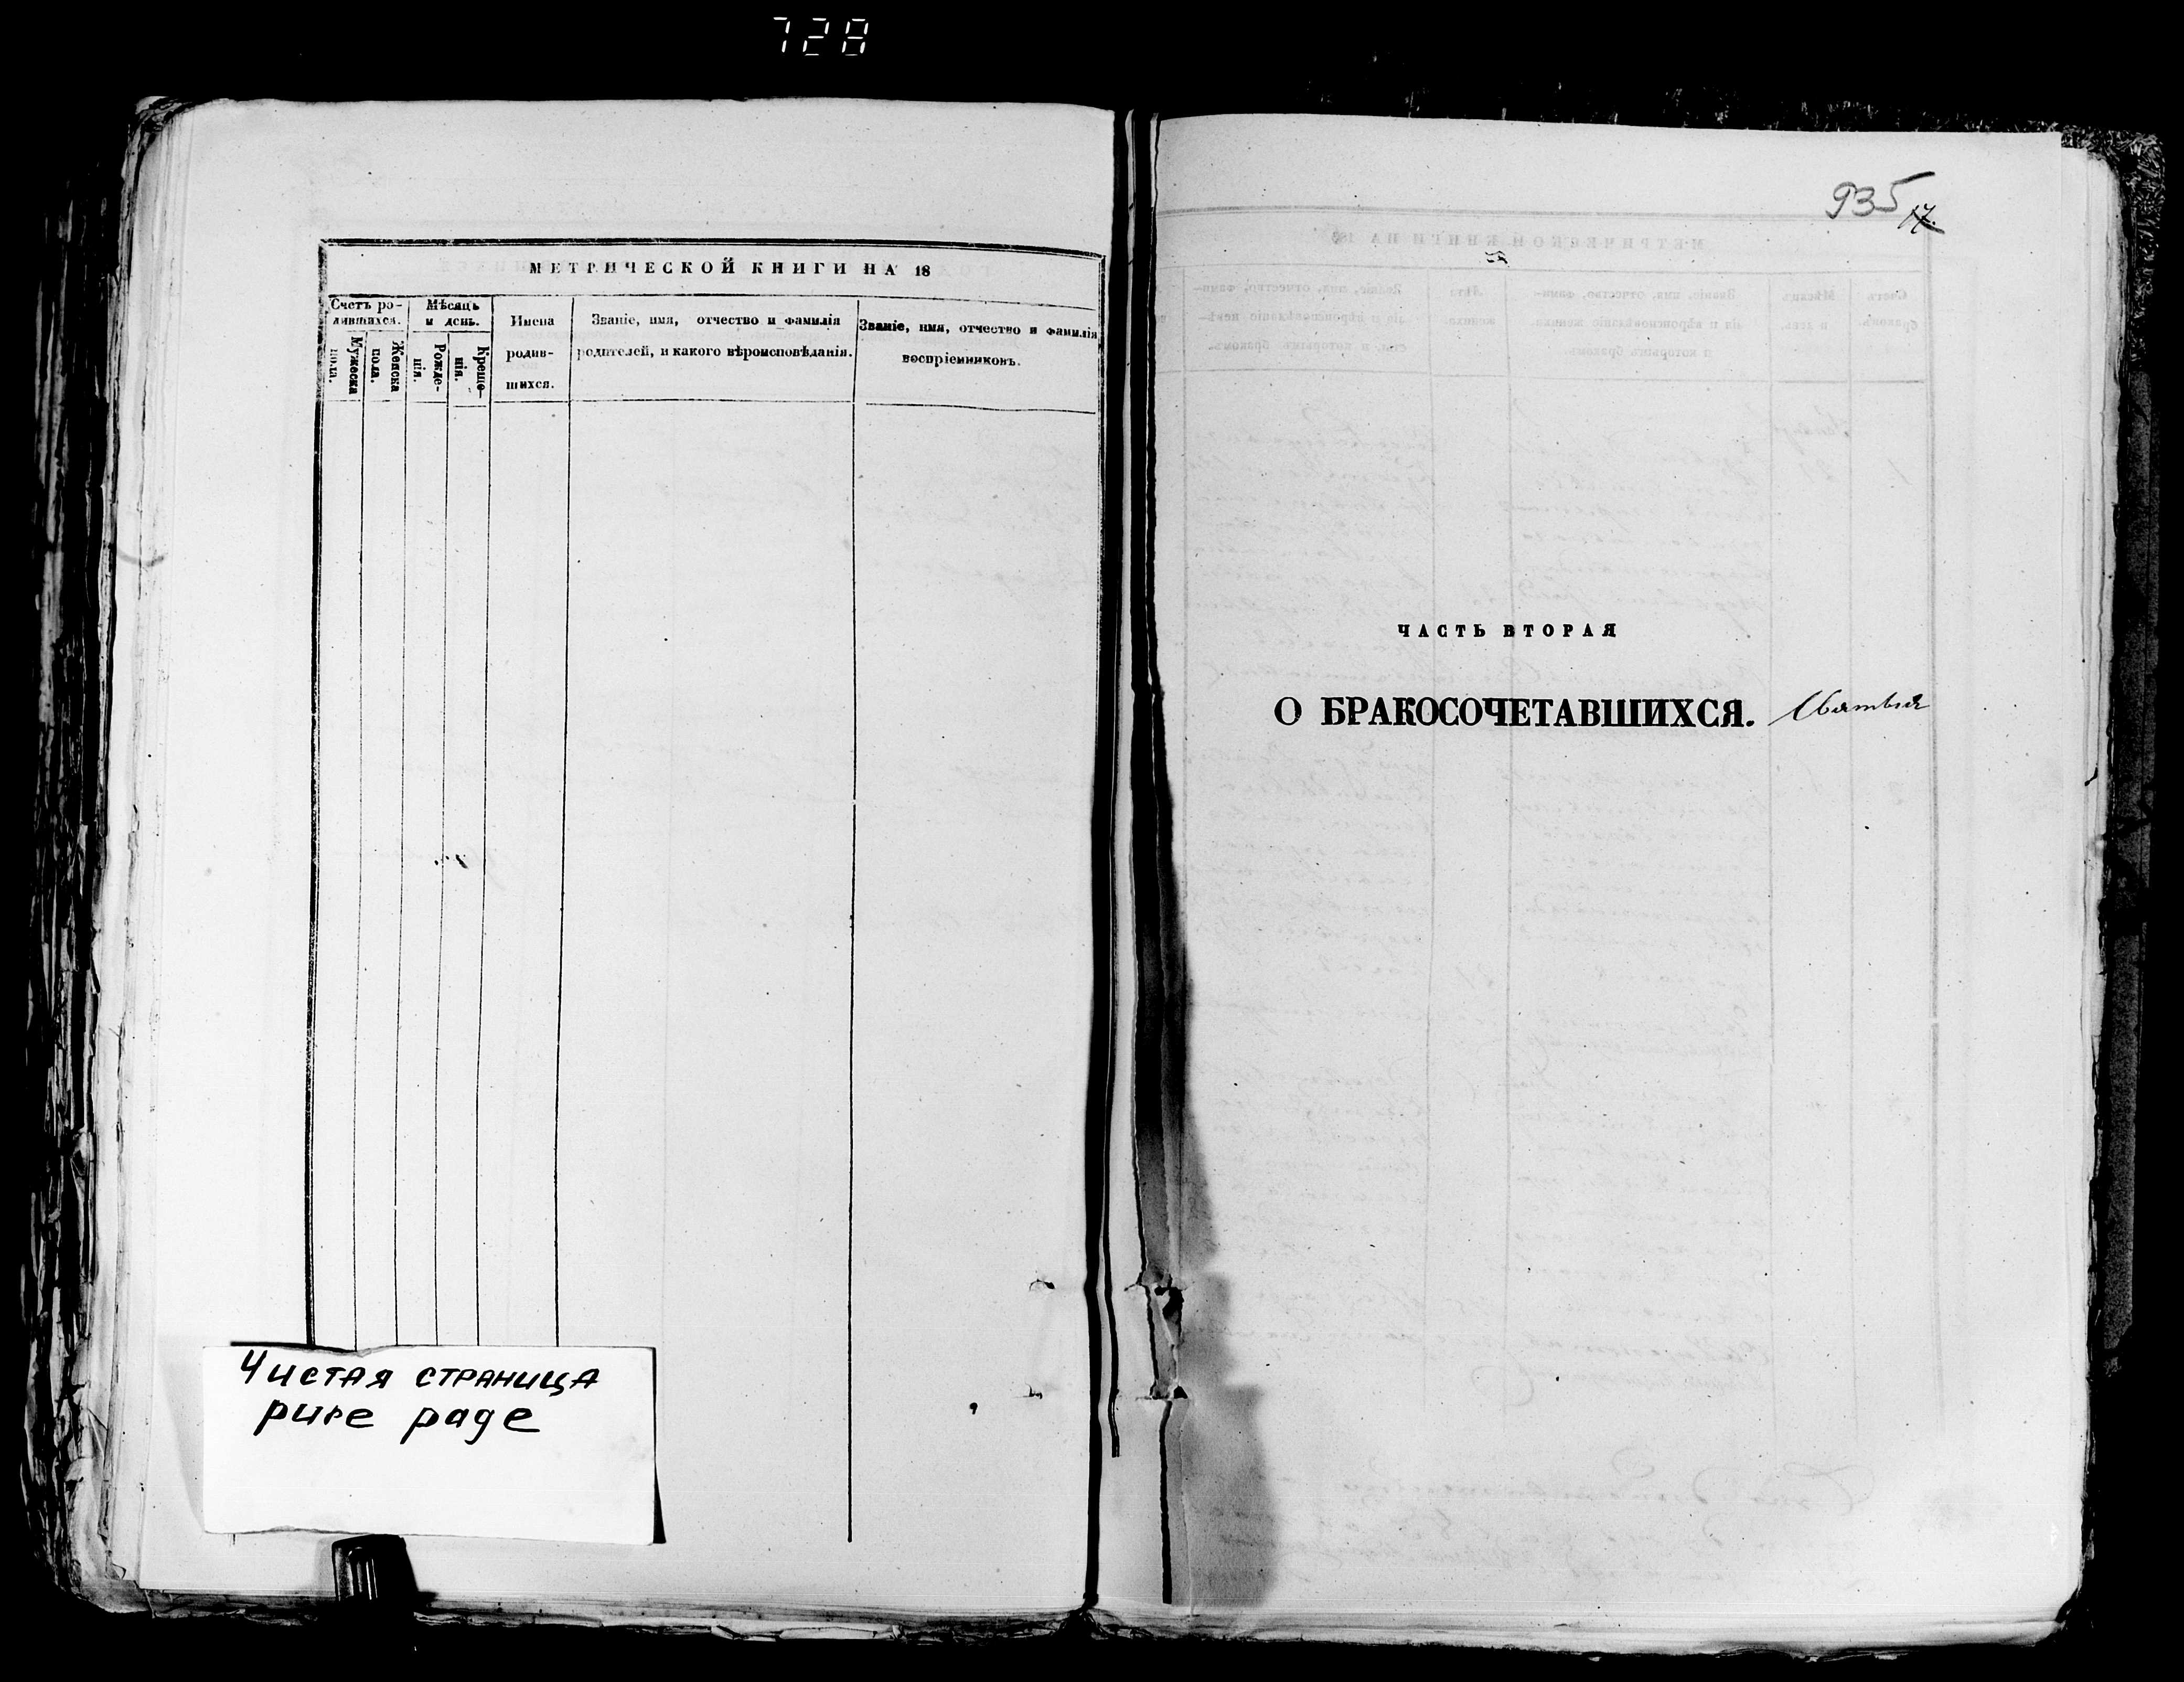 728
МЕТРИЧЕСКОЙ КНИГИ НА 18
Счетъ ро-
дившихся.
Мужеска
пола.
Женска
пола.
Мѣсяцъ
и день.
Рожде-
нія.
Креще-
нія.
Имена
родив-
шихся.
Званіе, имя, отчество и фамилія
родителей, и какого вѣроисповѣданія.
Званіе, имя, отчество и фамилія
воспріемниковъ.
Чистая страница
pure page
935
17.
ЧАСТЬ ВТОРАЯ
О БРАКОСОЧЕТАВШИХСЯ.